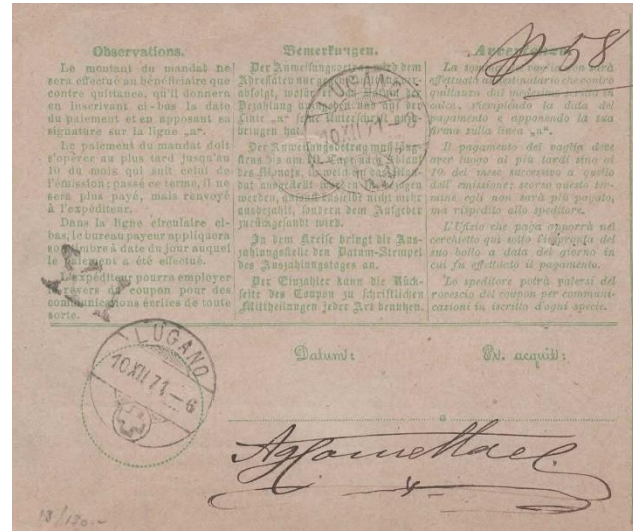 p 58
Observations.
Le montant du mandat ne
sera effectué au bénéficiaire que
contre quittance, qu'il donnera
en inscrivant ci-bas la date
du paiement et en apposant sa
signature sur la ligne „a“.
Le paiement du mandat doit
s'opérer au plus tard jusqu'au
10 du mois qui suit celui de
l'émission; passé ce terme, il ne
sera plus payé, mais renvoyé
à l'expéditeur.
Dans la ligne circulaire ci-
bas, le bureau payeur appliquera
son timbre à date du jour auquel
le paiement a été effectué.
L'expéditeur pourra employer
revers du coupon pour des
communications écrites de toute
sorte.
Bemerkungen.
Der Anweisungsbetrag wird dem
Adressaten nur
abfolgt, 
Bezahlung
Linie „a“ seine Unterschrift
bringen hat.
Der Anweisungsbetrag muß
bis am 10. Tage nach Ablauf
des Monats, in welchem
ausgestellt
werden,
ausbezahlt, sondern dem Aufgeber
zurückgesandt wird.
In dem Kreise bringt die Aus-
zahlungsstelle den Datum-Stempel
des Auszahlungstages an.
Der Einzahler kann die Rück-
seite des Coupon zu schriftlichen
Mittheilungen jeder Art benutzen.
La
effettuata
quittanza
calce, riempiendo la data del
pagamento e apponendo la sua
firma sulla linea „a“.
Il pagamento del vaglia deve
aver luogo al più tardi sino al
10. del mese successivo a quello
dell' emissione; scorso questo ter-
mine egli non sarà più pagato,
ma rispedito allo speditore.
L'Ufizio che paga apporrà nel
cerchietto qui sotto l'impronta del
suo bollo a data del giorno in
cui fu effettuato il pagamento.
Lo speditore potrà valersi del
rovescio del coupon per communi-
cazioni in iscritto d'ogni specie.
LUGANO
10 XII 71 – 6
LUGANO
10 XII 71 – 6
Datum:
Pr. acquit:
a
13/130.-